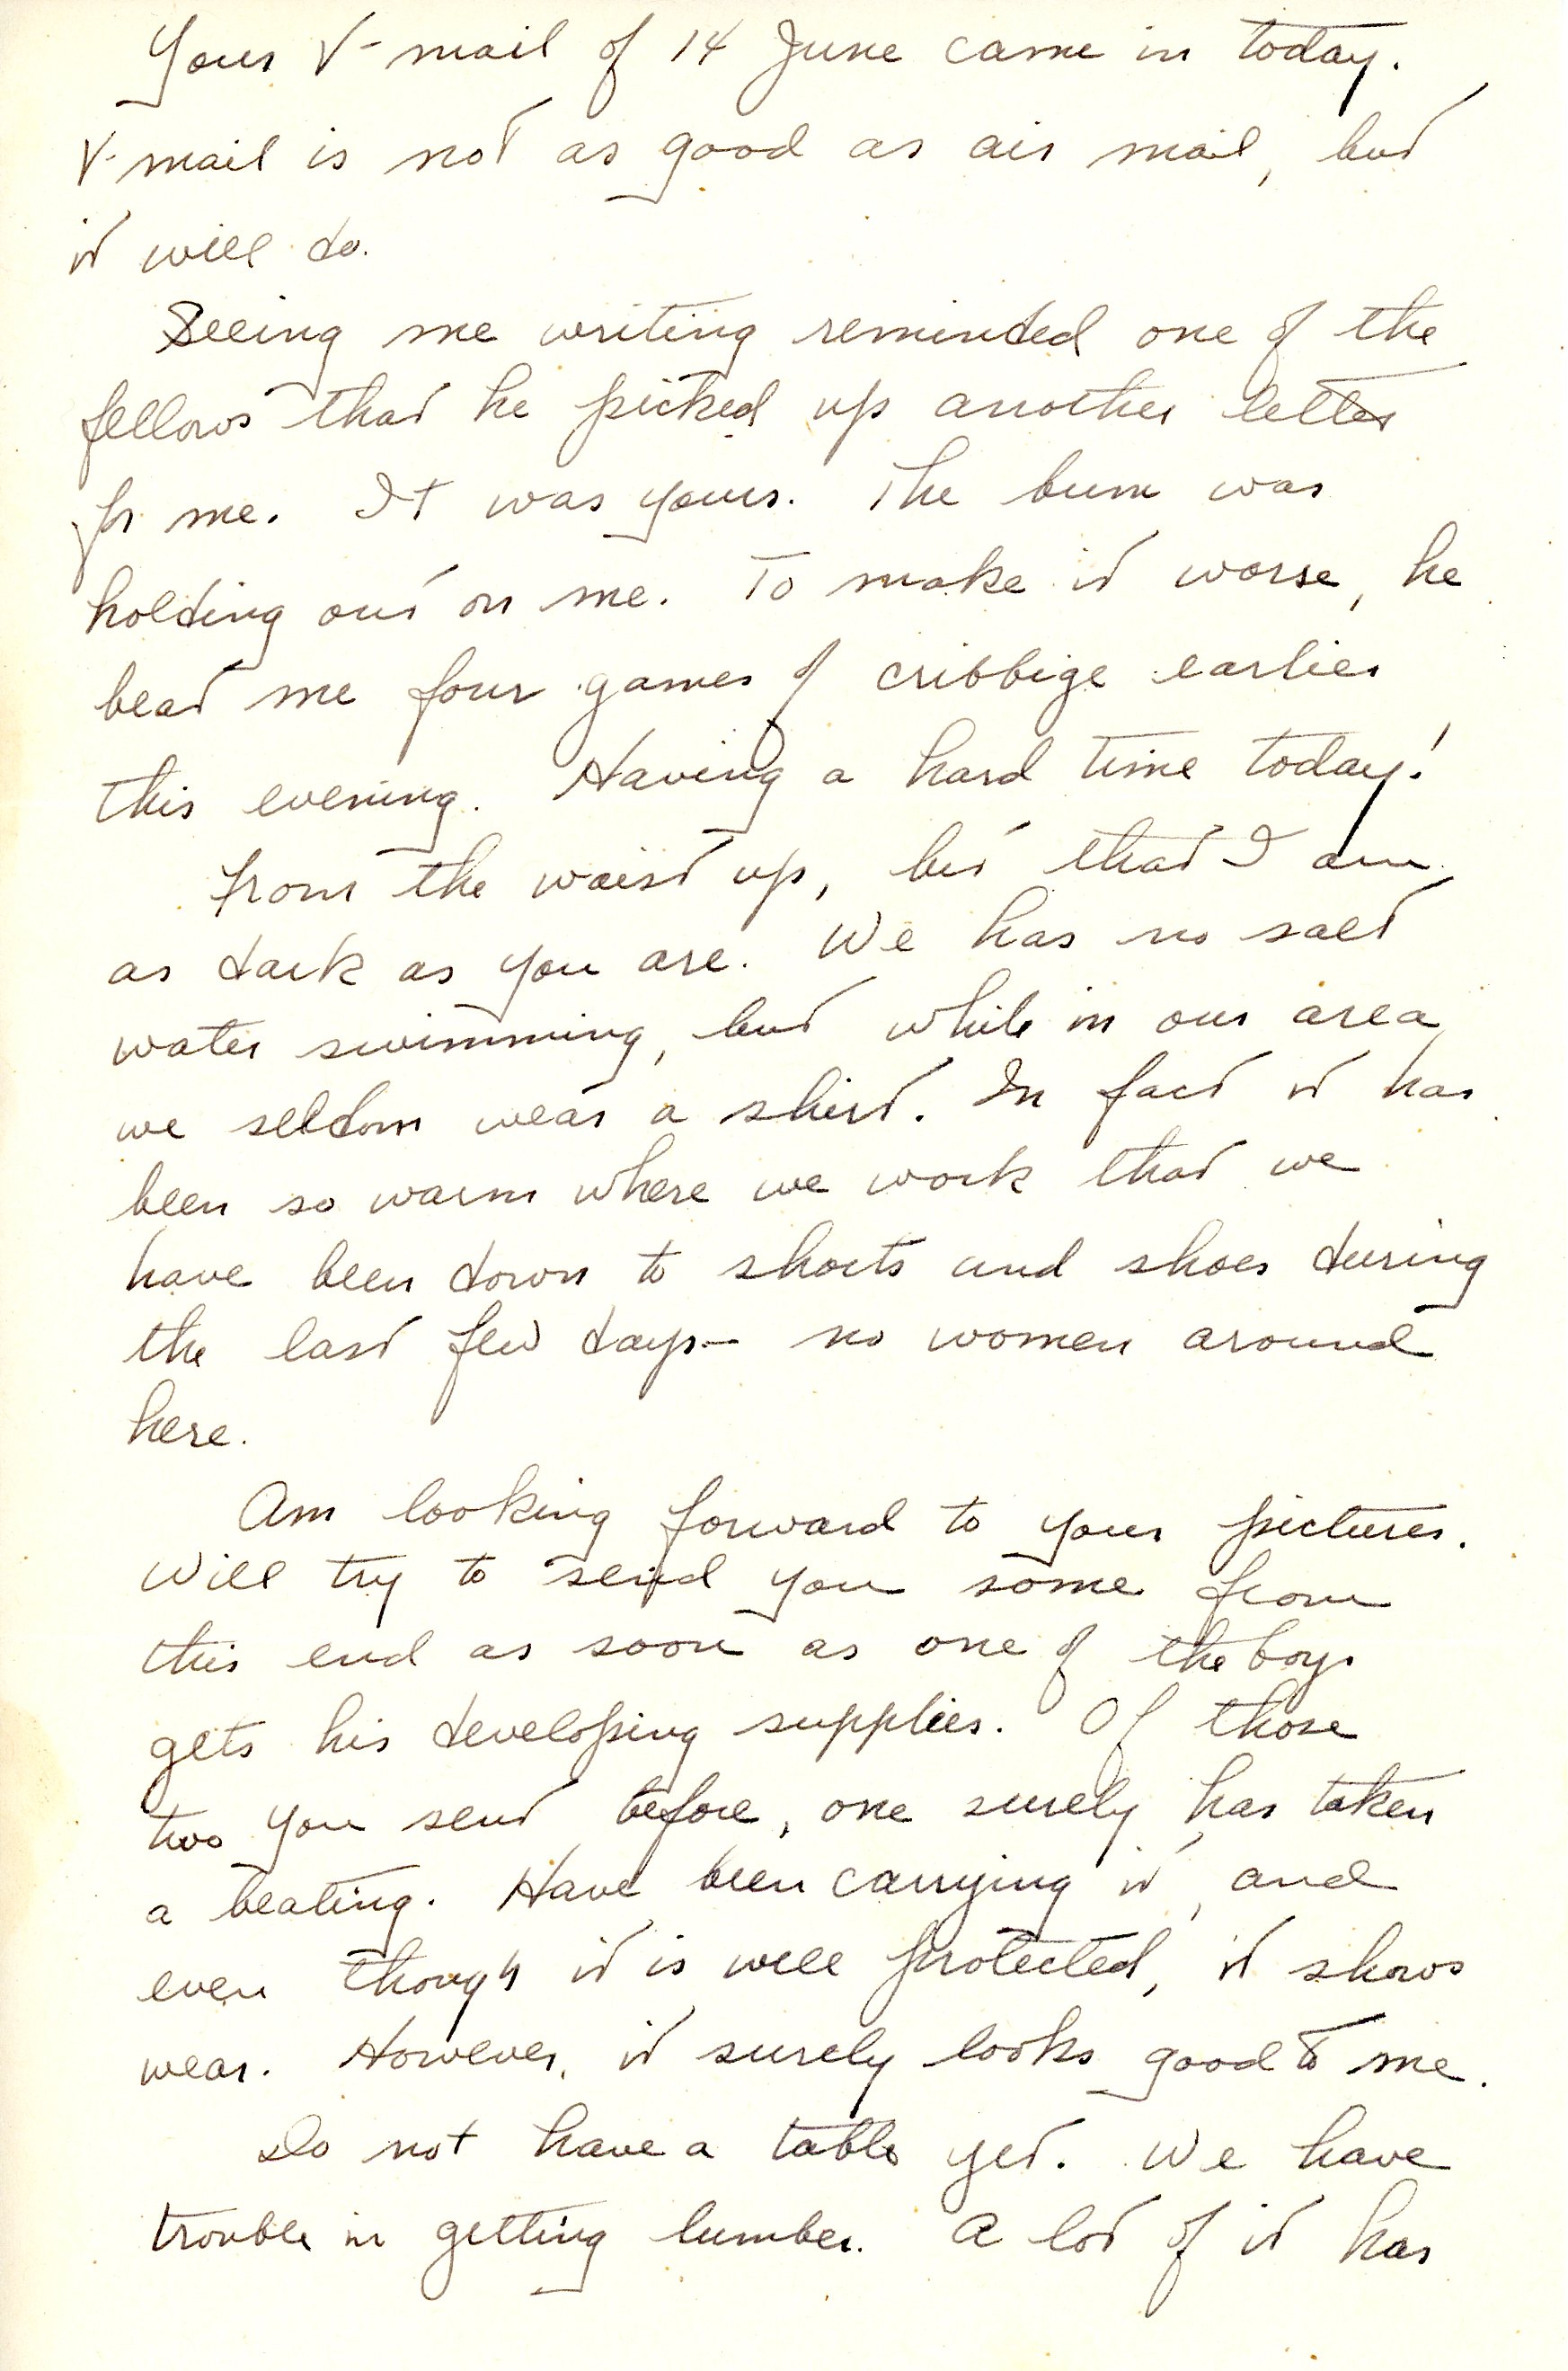 Your V-mail of 14 June came in today.
V-mail is not as good as air mail, but
it will do.
Seeing me writing reminded one of the
fellows that he picked up another letter
for me. It was yours. The bum was
holding out on me. To make it worse, he
beat me four games of cribbige earlier
this evening. Having a hard time today!
From the waist up, bet that I am
as dark as you are. We has no salt
water swimming, but while in our area,
we seldom wear a shirt. In fact it has
been so warm where we work that we
have been down to shorts and shoes during
the last few days— no women around
here.
Am looking forward to your pictures.
Will try to send you some from
this end as soon as one of the boys
gets his developing supplies. Of those
two you sent before, one surely has taken
a beating. Have been carrying it, and
even though it is well protected, it shows
wear. However, it surely looks good to me.
Do not have a table yet. We have
trouble in getting lumber. A lot of it has